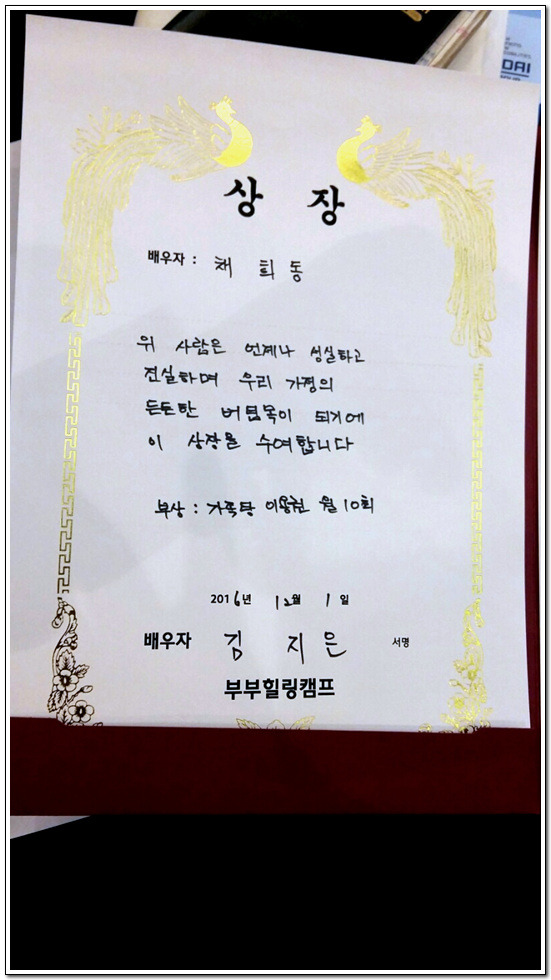 DAI
상 장
배우자 : 채 희 동
위 사람은 언제나 성실하고
진실하며 우리 가정의
든든한 버팀목이 되기에
이 상장을 수여합니다
부상 : 가족탕 이용권 월 10회
2016년 12월 1일
배우자 김 지 은 서명
부부힐링캠프